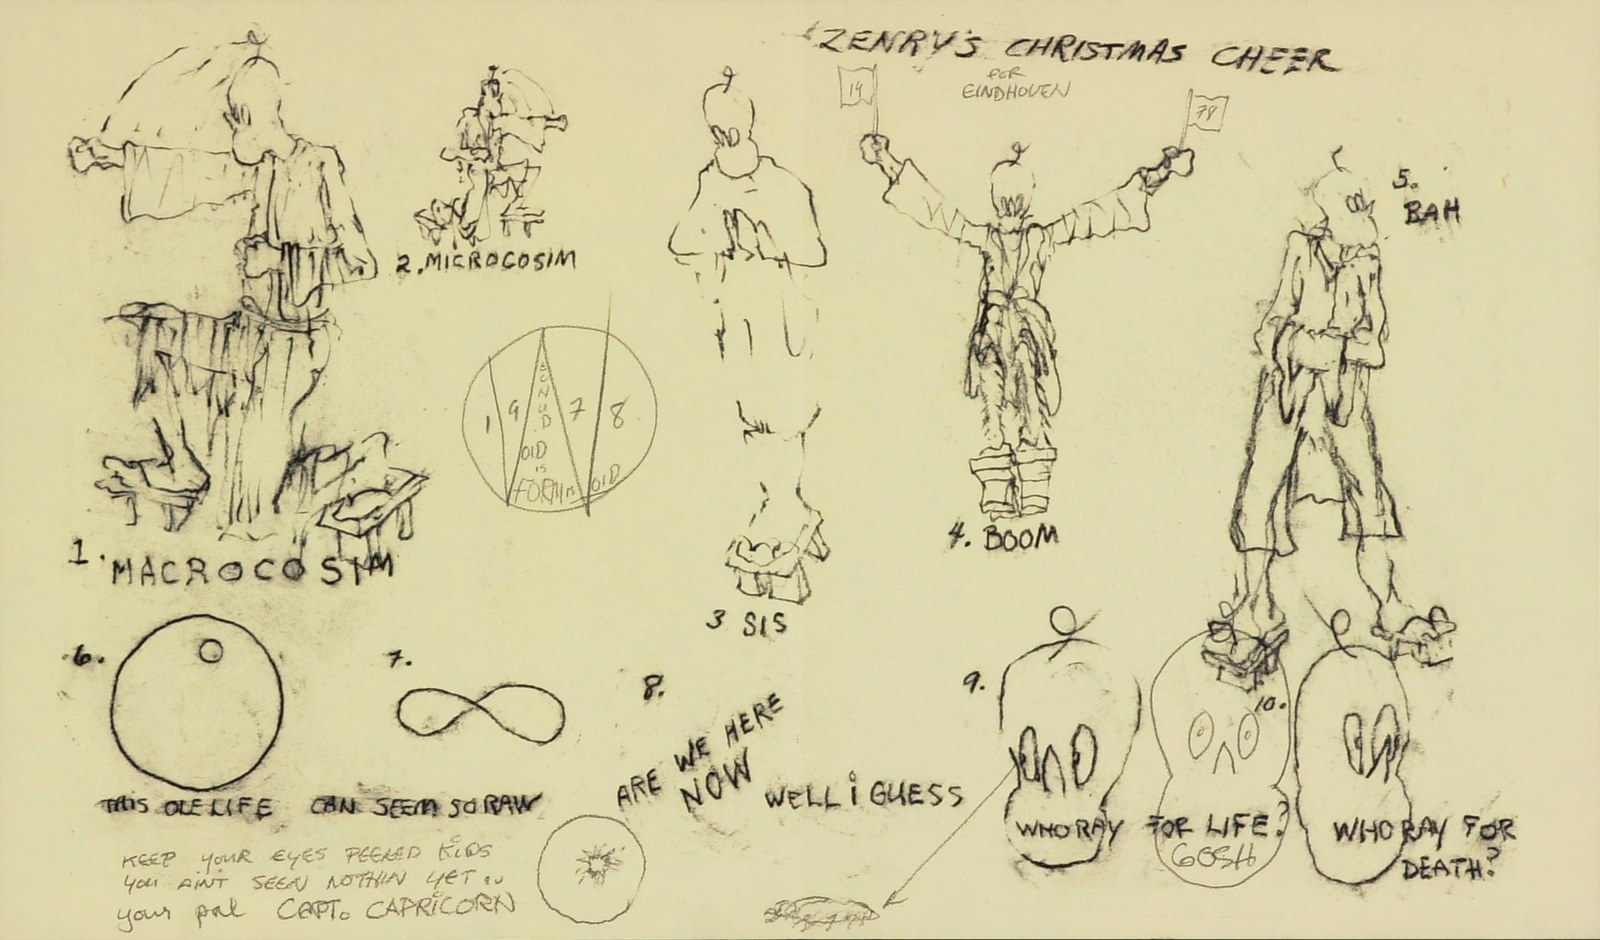 ZENRY'S CHRISTMAS CHEER
FOR
EINDHOVEN
19
78
5.
BAH
2. MICROCOSIM
1 9 7 8
SOUND
OID
IS
FORM IS OID
1. MACROCOSIM
3 SIS
4. BOOM
6.
7.
8.
9.
10.
THIS OLE LIFE CAN SEEM SO RAW
ARE WE HERE
NOW
WELL i GUESS
WHORAY FOR LIFE?
GOSH
WHORAY FOR
DEATH?
KEEP YOUR EYES PEELED KiDS
YOU AINT SEEN NOTHIN YET..
your pal CAPT. CAPRiCORN